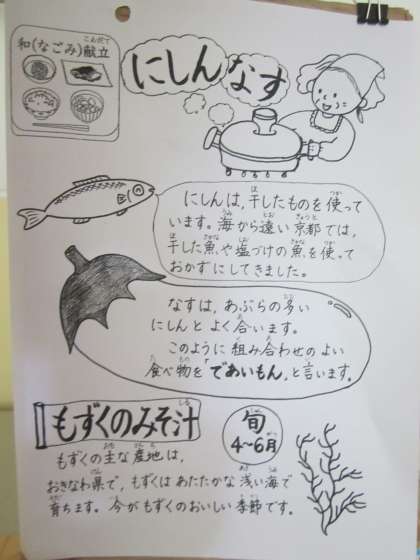 和(なごみ)献立
にしんなす
にしんは、干したものを使って
います。海から遠い京都では、
干した魚や塩づけの魚を使って
おかずにしてきました。
なすは、あぶらの多い
にしんとよく合います。
このように組み合わせのよい
食べ物をであいもん、と言います。
もずくのみそ汁
旬
4〜6月
もずくの主な産地は、
おきなわ県で、もずくはあたたかな浅い海で
育ちます。今がもずくのおいしい季節です。